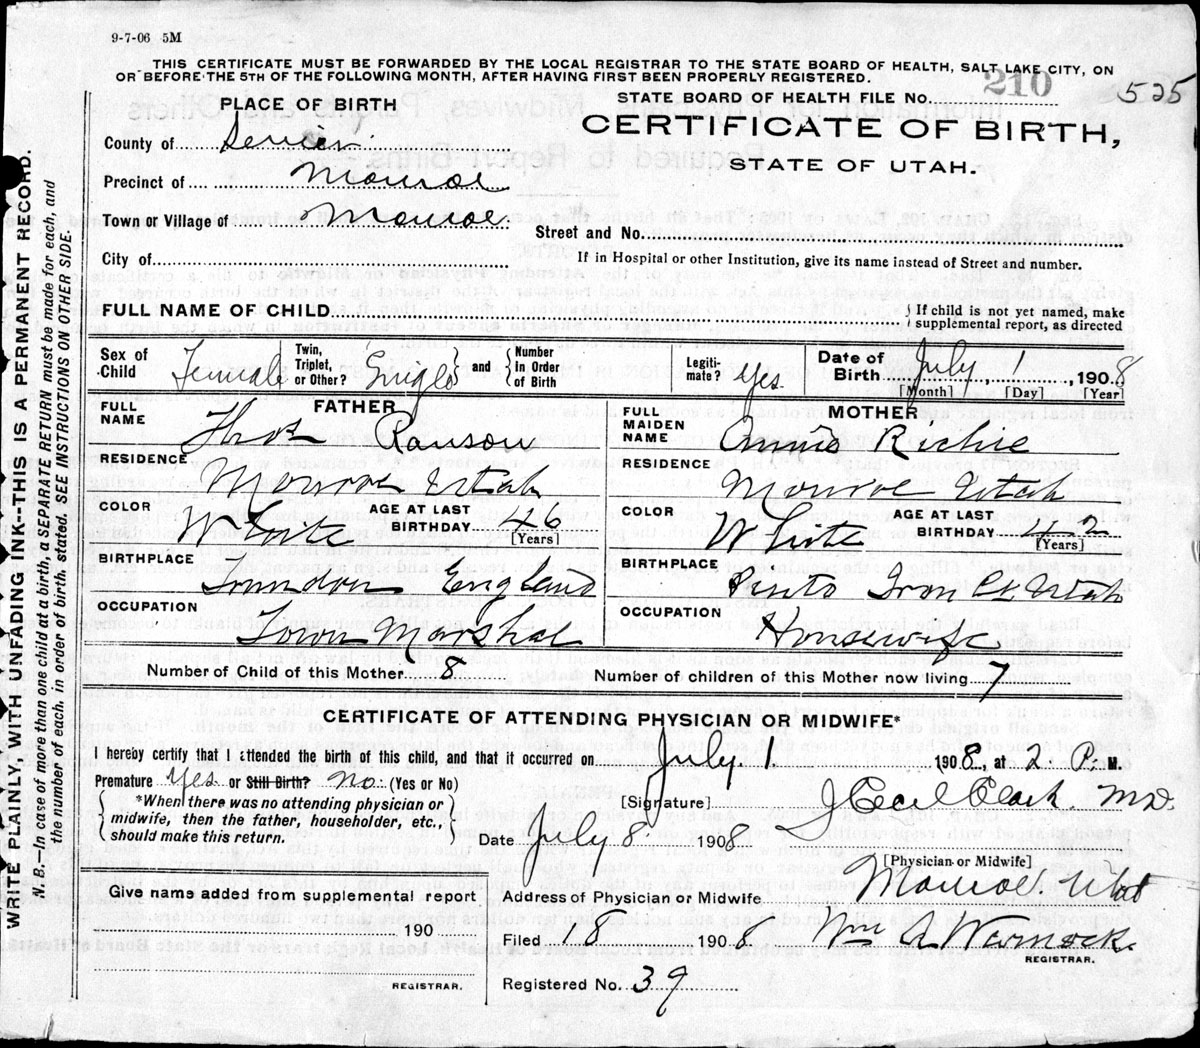 9-7-06 5M
THIS CERTIFICATE MUST BE FORWARDED BY THE LOCAL REGISTRAR TO THE STATE BOARD OF HEALTH, SALT LAKE CITY, ON
OR BEFORE THE 5TH OF THE FOLLOWING MONTH, AFTER HAVING FIRST BEEN PROPERLY REGISTERED.
PLACE OF BIRTH
STATE BOARD OF HEALTH FILE No. 210 525
CERTIFICATE OF BIRTH,
STATE OF UTAH.
County of Sevier
Precinct of Monroe
Town or Village of Monroe
Street and No.
City of
If in Hospital or other Institution, give its name instead of Street and number.
FULL NAME OF CHILD
} If child is not yet named, make
supplemental report, as directed
Sex of Child Female
Twin, Triplet, or Other? Single } and { Number In Order of Birth
Legitimate? Yes
Date of Birth July 1, 1908
[Month] [Day] [Year]
FATHER
FULL NAME Thos Ranson
RESIDENCE Monroe Utah
COLOR White
AGE AT LAST BIRTHDAY 46
[Years]
BIRTHPLACE England
OCCUPATION Town Marshal
MOTHER
FULL MAIDEN NAME Annie Richie
RESIDENCE Monroe Utah
COLOR White
AGE AT LAST BIRTHDAY 42
[Years]
BIRTHPLACE Pinto Iron Co Utah
OCCUPATION Housewife
Number of Child of this Mother 8
Number of children of this Mother now living 7
CERTIFICATE OF ATTENDING PHYSICIAN OR MIDWIFE*
I hereby certify that I attended the birth of this child, and that it occurred on July 1. 1908, at 2 P. M.
Premature Yes or Still Birth? No (Yes or No)
{ *When there was no attending physician or
midwife, then the father, householder, etc.,
should make this return. }
[Signature] J Cecil Clark MD.
Date July 8 1908
[Physician or Midwife]
Address of Physician or Midwife Monroe Utah
Give name added from supplemental report
190
REGISTRAR.
Filed 18 1908 Wm A Warnock.
REGISTRAR.
Registered No. 39
WRITE PLAINLY, WITH UNFADING INK--THIS IS A PERMANENT RECORD.
N. B.—In case of more than one child at a birth, a SEPARATE RETURN must be made for each, and
the number of each, in order of birth, stated. SEE INSTRUCTIONS ON OTHER SIDE.